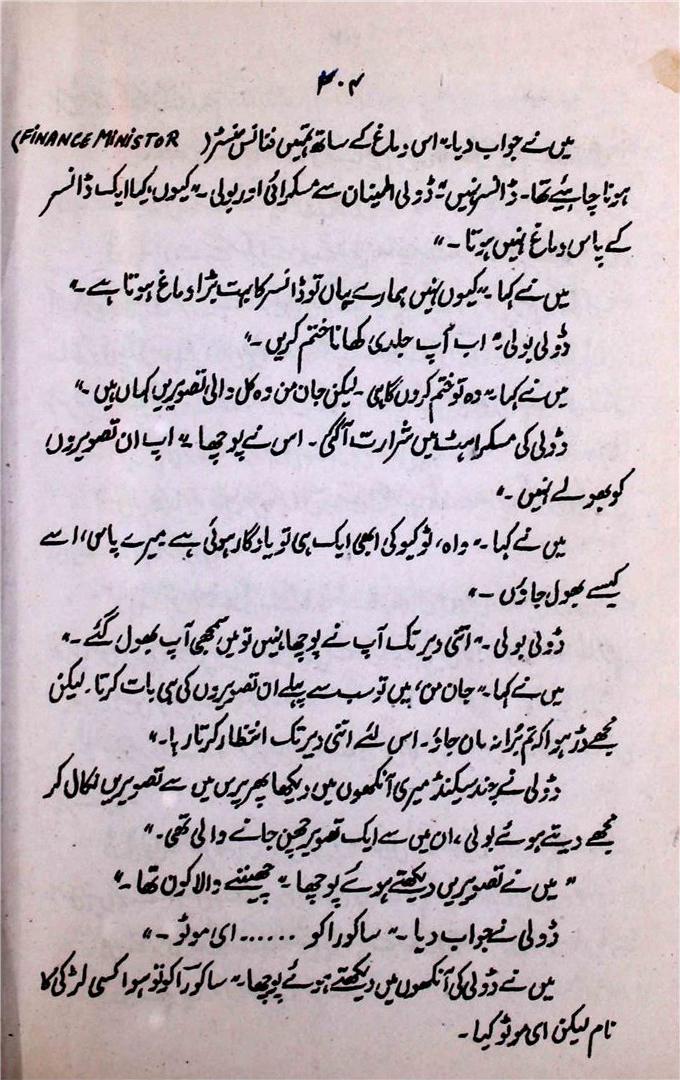 ۳۰۴
میں نے جواب دیا۔ "اس دماغ کے ساتھ تمہیں فنانس منسٹر (FINANCE MINISTOR)
ہونا چاہیئے تھا۔ ڈانسر نہیں۔" ڈولی اطمینان سے مسکرائی اور بولی۔ "کیوں، کیا ایک ڈانسر
کے پاس دماغ نہیں ہوتا۔"
میں نے کہا۔ "کیوں نہیں ہمارے یہاں تو ڈانسر کا بہت بڑا دماغ ہوتا ہے۔"
ڈولی بولی۔ "اب آپ جلدی کھانا ختم کریں۔"
میں نے کہا۔ "وہ تو ختم کروں گا ہی۔ لیکن جان من وہ کل والی تصویریں کہاں ہیں۔"
ڈولی کی مسکراہٹ میں شرارت آگئی۔ اس نے پوچھا۔ "آپ ان تصویروں
کو بھولے نہیں۔"
میں نے کہا۔ "واہ، ٹوکیو کی ابھی ایک ہی تو یادگار ہوئی ہے میرے پاس، اسے
کیسے بھول جاؤں۔"
ڈولی بولی۔ "اتنی دیر تک آپ نے پوچھا نہیں تو میں سمجھی آپ بھول گئے۔"
میں نے کہا۔ "جان من، میں تو سب سے پہلے ان تصویروں کی ہی بات کرتا۔ لیکن
مجھے ڈر ہوا کہ تم بُرا نہ مان جاؤ۔ اس لئے اتنی دیر تک انتظار کرتا رہا۔"
ڈولی نے چند سیکنڈ میری آنکھوں میں دیکھا پھر پرس میں سے تصویریں نکال کر
مجھے دیتے ہوئے بولی، ان میں سے ایک تصویر چھن جانے والی تھی۔"
"میں نے تصویریں دیکھتے ہوئے پوچھا۔ "چھیننے والا کون تھا۔"
ڈولی نے جواب دیا۔ "ساکورا کو ...... ای موٹو۔"
میں نے ڈولی کی آنکھوں میں دیکھتے ہوئے پوچھا۔ "ساکورا کو تو ہوا کسی لڑکی کا
نام لیکن ای موٹو کیا۔